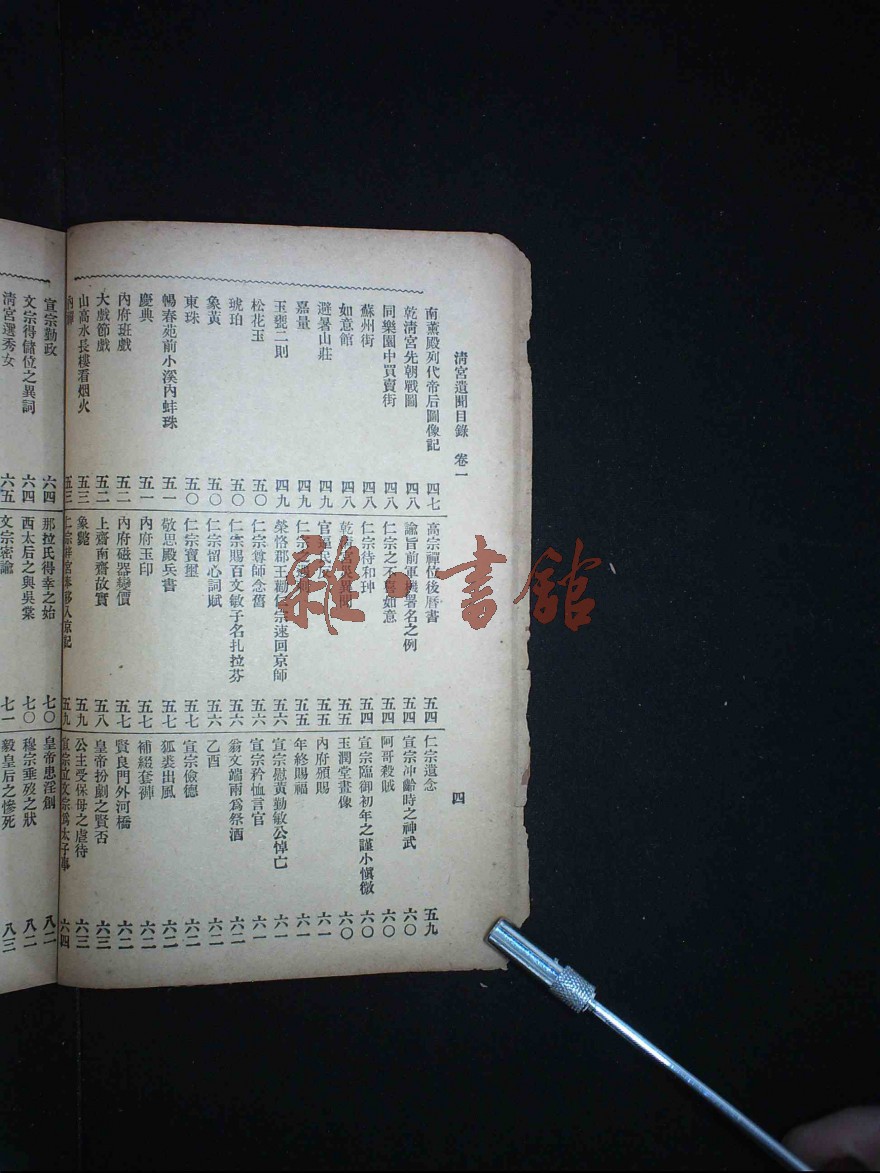 清宮遺聞目錄 卷一
四
南薰殿列代帝后圖像記 四七
乾清宮先朝戰圖 四八
同樂園中買賣街 四八
蘇州街 四八
如意館 四八
避暑山莊 四九
嘉量 四九
玉甕二則 四九
松花玉 五〇
琥珀 五〇
象黃 五〇
東珠 五〇
暢春苑前小溪內蚌珠 五一
慶典 五一
內府班戲 五二
大戲節戲 五二
山高水長樓看烟火 五三
五三
高宗禪位後曆書 五四
諭旨前軍機署名之例 五四
仁宗之不喜如意 五四
仁宗待和珅 五四
乾清宮 五五
五五
仁宗 五五
榮恪郡王勸仁宗速回京師 五六
仁宗尊師念舊 五六
仁宗賜百文敏子名扎拉芬 五六
仁宗留心詞賦 五六
仁宗寶璽 五七
敬思殿兵書 五七
內府玉印 五七
內府磁器變價 五七
上齋南齋故實 五八
象斃 五九
五九
仁宗遺念 五九
宣宗冲齡時之神武 六〇
阿哥殺賊 六〇
宣宗臨御初年之謹小愼微 六〇
玉潤堂畫像 六〇
內府頒賜 六一
年終賜福 六一
宣宗慰黃勤敏公悼亡 六一
宣宗矜恤言官 六一
翁文端兩爲祭酒 六二
乙酉 六二
宣宗儉德 六二
狐裘出風 六二
補綴套褲 六二
賢良門外河橋 六二
皇帝扮劇之賢否 六三
公主受保母之虐待 六三
宣宗立文宗爲太子事 六四
宣宗勤政 六四
文宗得儲位之異詞 六四
清宮選秀女 六五
那拉氏得幸之始 七〇
西太后之與吳棠 七〇
文宗密諭 七一
皇帝患淫創 八二
穆宗垂歿之狀 八二
毅皇后之慘死 八三
雜·書館